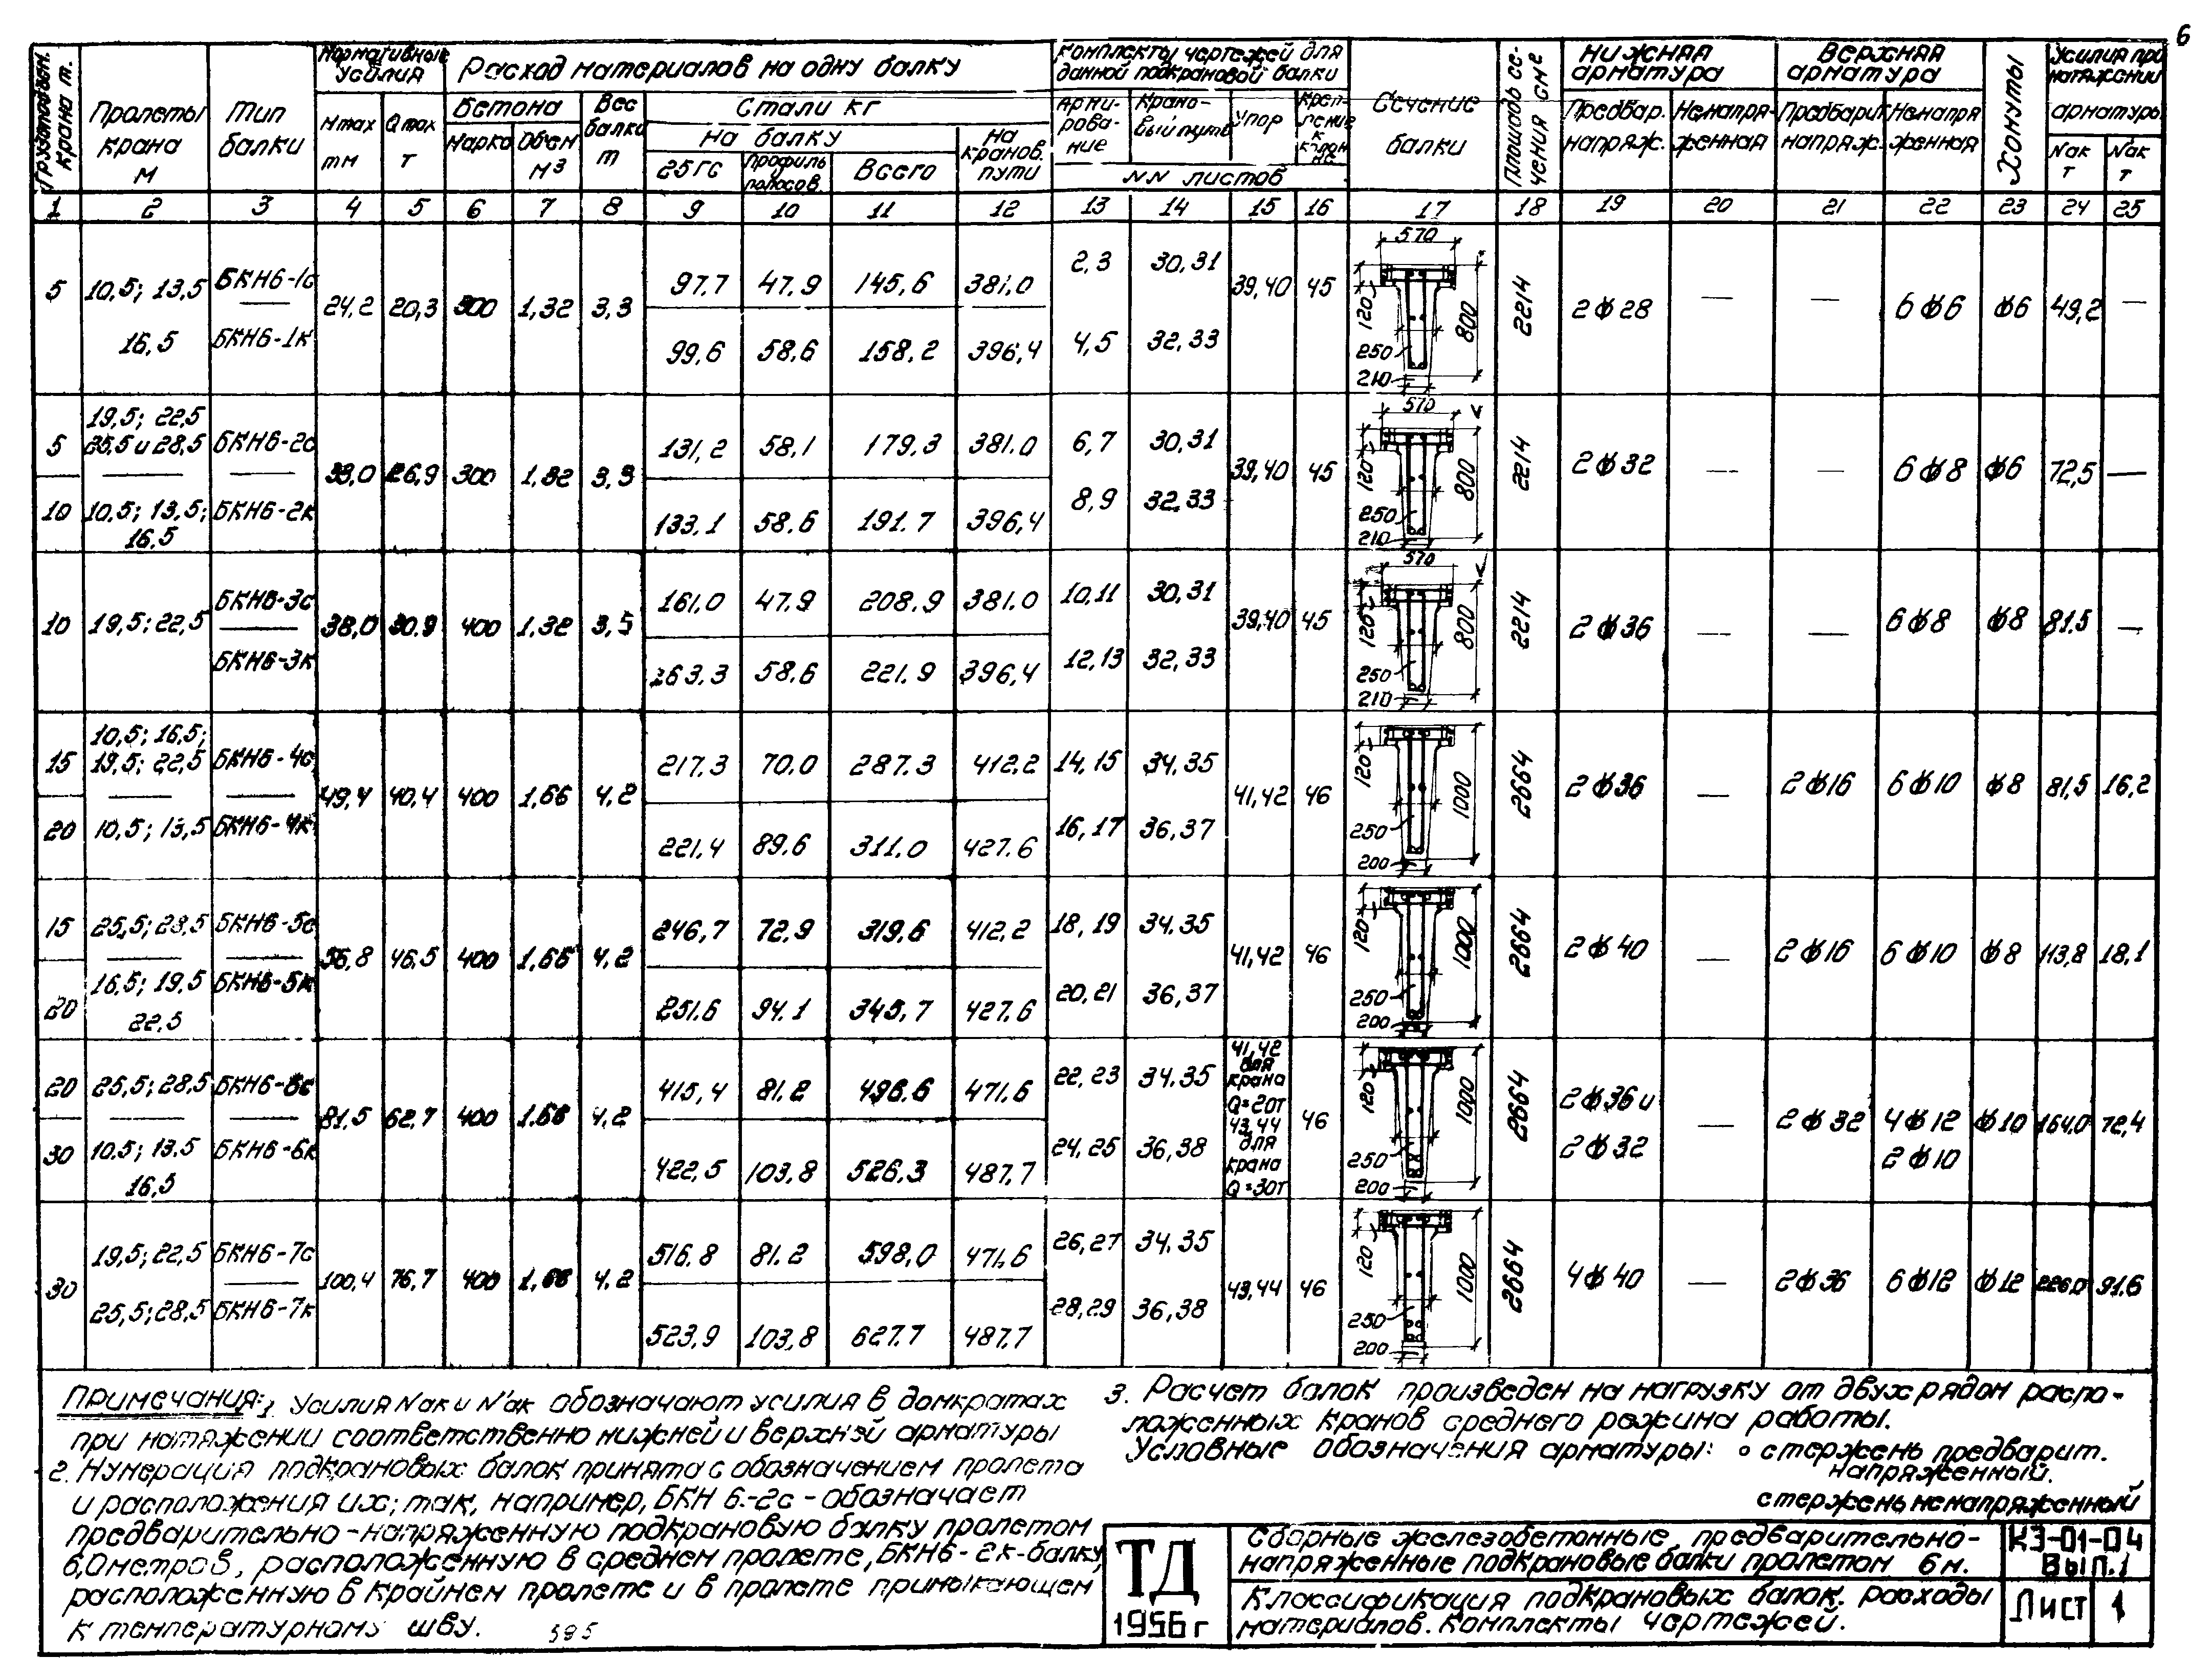 6
Грузоподъем. крана т.
Пролеты крана м
Тип балки
Нормативные усилия
Mmax тм
Qmax т
Расход материалов на одну балку
Бетона
Марка
Объем м³
Вес балки т
Стали кг
На балку
25ГС
Профиль полосов.
Всего
На кранов. пути
Комплекты чертежей для данной подкрановой балки
Армирование
Крановый путь
Упор
Крепление к колонне
NN листов
Сечение балки
Площадь сечения см²
Нижняя арматура
Предвар. напряж.
Ненапряженная
Верхняя арматура
Предварит. напряж.
Ненапряженная
Хомуты
Усилия при натяжении арматуры
Nак т
N'ак т
1 2 3 4 5 6 7 8 9 10 11 12 13 14 15 16 17 18 19 20 21 22 23 24 25
5 10,5; 13,5 16,5 БКН6-1с БКН6-1к 24,2 20,3 300 1,32 3,3
97,7 47,9 145,6 381,0 2,3 30,31
99,6 58,6 158,2 396,4 4,5 32,33
39,40 45 570 120 800 250 210 2214 2ф28 — — 6ф6 ф6 49,2 —
5 19,5; 22,5 25,5 и 28,5 БКН6-2с
10 10,5; 13,5; 16,5 БКН6-2к
33,0 26,9 300 1,32 3,3
131,2 58,1 179,3 381,0 6,7 30,31
133,1 58,6 191,7 396,4 8,9 32,33
39,40 45 570 120 800 250 210 2214 2ф32 — — 6ф8 ф6 72,5 —
10 19,5; 22,5 БКН6-3с БКН6-3к 38,0 30,9 400 1,32 3,5
161,0 47,9 208,9 381,0 10,11 30,31
263,3 58,6 221,9 396,4 12,13 32,33
39,40 45 570 120 800 250 210 2214 2ф36 — — 6ф8 ф8 81,5 —
15 10,5; 16,5; 19,5; 22,5 БКН6-4с
20 10,5; 13,5 БКН6-4к
49,4 40,4 400 1,66 4,2
217,3 70,0 287,3 412,2 14,15 34,35
221,4 89,6 311,0 427,6 16,17 36,37
41,42 46 120 1000 250 200 2664 2ф36 — 2ф16 6ф10 ф8 81,5 16,2
15 25,5; 28,5 БКН6-5с
20 16,5; 19,5 22,5 БКН6-5к
56,8 46,5 400 1,66 4,2
246,7 72,9 319,6 412,2 18,19 34,35
251,6 94,1 345,7 427,6 20,21 36,37
41,42 46 120 1000 250 200 2664 2ф40 — 2ф16 6ф10 ф8 113,8 18,1
20 25,5; 28,5 БКН6-6с
30 10,5; 13,5 16,5 БКН6-6к
81,5 62,7 400 1,66 4,2
415,4 81,2 496,6 471,6 22,23 34,35
422,5 103,8 526,3 487,7 24,25 36,38
41,42 для крана Q=20т 43,44 для крана Q=30т
46 120 1000 250 200 2664 2ф36 и 2ф32 — 2ф32 4ф12 2ф10 ф10 164,0 72,4
30 19,5; 22,5 БКН6-7с
25,5; 28,5 БКН6-7к
100,4 76,7 400 1,66 4,2
516,8 81,2 598,0 471,6 26,27 34,35
523,9 103,8 627,7 487,7 28,29 36,38
43,44 46 120 1000 250 200 2664 4ф40 — 2ф36 6ф12 ф12 226,0 91,6
Примечания: 1. Усилия Nак и N'ак обозначают усилия в домкратах
при натяжении соответственно нижней и верхней арматуры
2. Нумерация подкрановых балок принята с обозначением пролета
и расположения их; так, например, БКН 6.-2с - обозначает
предварительно-напряженную подкрановую балку пролетом
6,0 метров, расположенную в среднем пролете, БКН6-2к-балку,
расположенную в крайнем пролете и в пролете примыкающем
к температурному шву.
595
3. Расчет балок произведен на нагрузку от двух рядом распо-
ложенных кранов среднего режима работы.
Условные обозначения арматуры: ∘ стержень предварит.
напряженный.
стержень ненапряженный
ТД
1956г
Сборные железобетонные предварительно-
напряженные подкрановые балки пролетом 6 м.
Классификация подкрановых балок. расходы
материалов. Комплекты чертежей.
КЭ-01-04
Вып.1
Лист 1